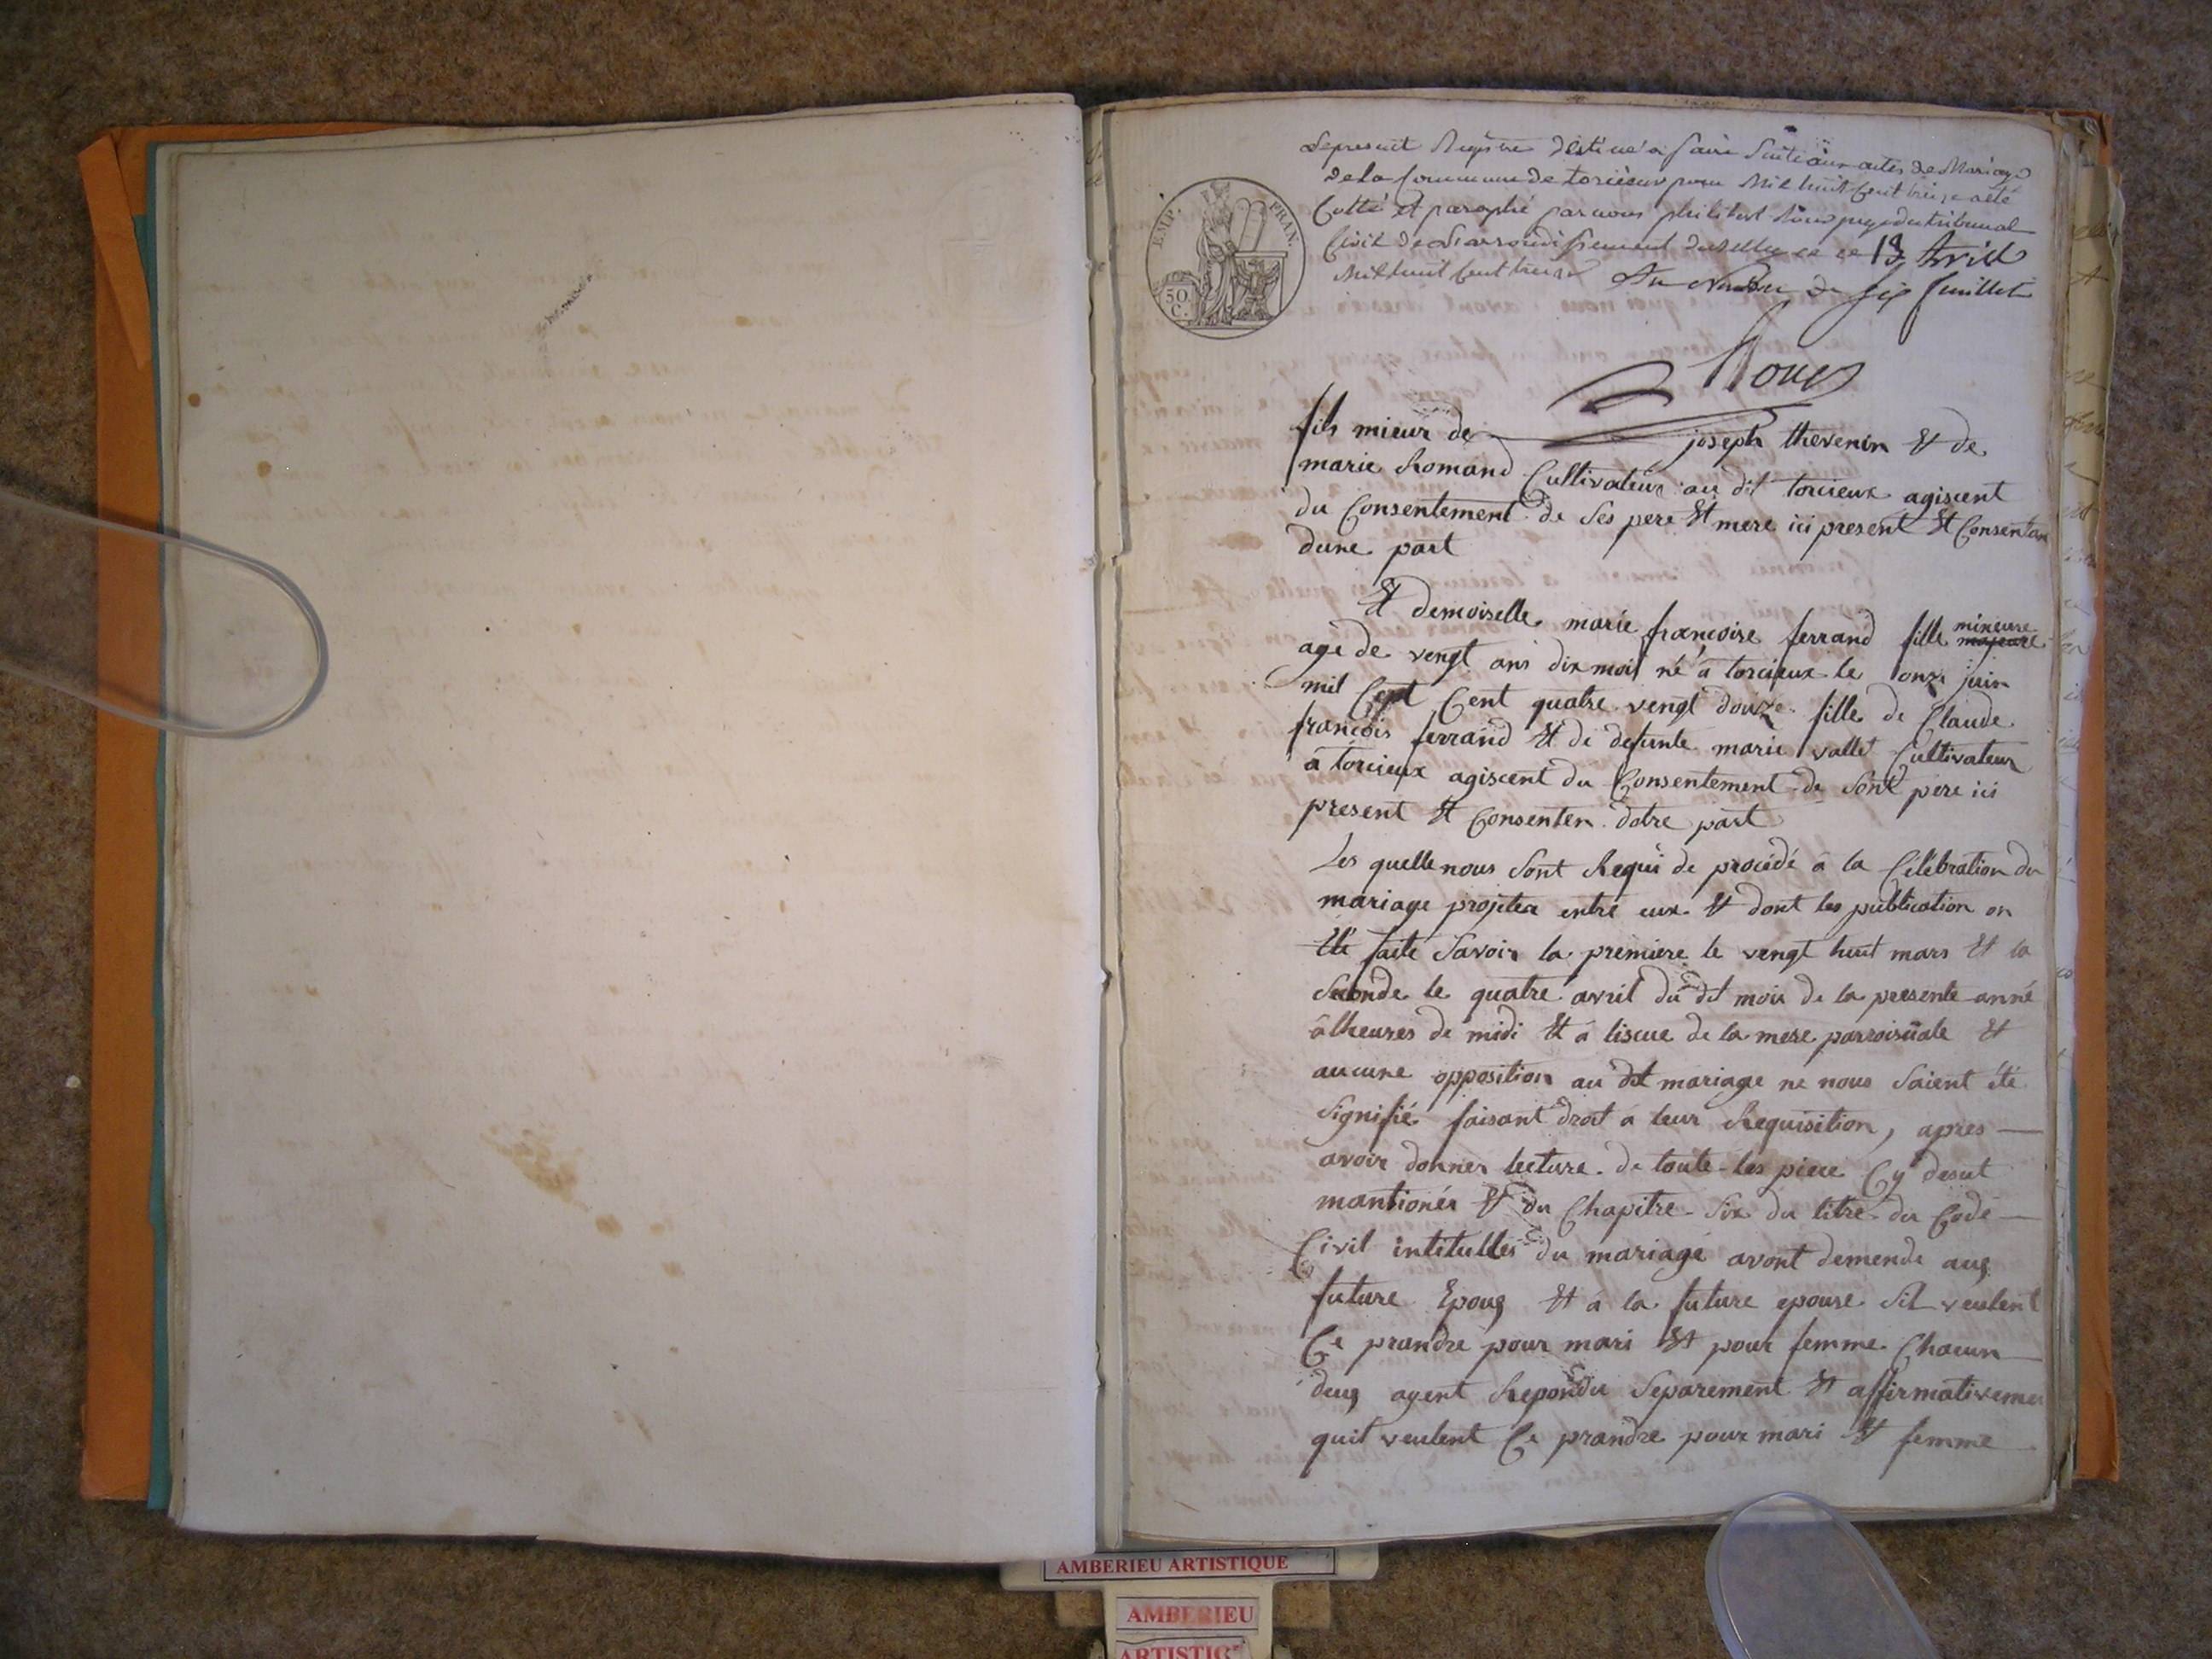 Le present Registre destiné a faire Suite aux actes de Mariage
de la Commune de torcieux pour Mil huit Cent treize a été
Cotté et paraphé par nous philibert Roux juge du tribunal
Civil de L'arrondissement de Belley ce 13 Avril
Mil huit Cent treize Au Nombre de Six feuillets
EMP. FRAN.
50 C.
Roux
fils mieur de joseph thevenin Et de
marie Romand Cultivateur au dit torcieux agiscent
du Consentement de Ses pere Et mere ici present Et Consentan
dune part
Et demoiselle marie françoise ferrand fille mineure majeure
age de vengt ans dix mois né a torcieux le onze juin
mil Cept Cent quatre vengt douze fille de Claude
françois ferrand Et de defunte marie vallet Cultivateur
a torcieux agiscent du Consentement de Sont pere ici
present Et Consenten dotre part
Les quelle nous Sont Requi de procédé a la Célébration du
mariage projetea entre eux Et dont les publication on
Eté faite Savoir la premiere le vengt huit mars Et la
Seconde le quatre avril du dit mois de la presente anné
a lheures de midi Et a liscue de la mese parroisiiale Et
aucune opposition au dit mariage ne nous Saient été
Signifié faisant droit a leur Requisition, apres
avoir donner lecture de toute les piece Cy desut
mantionés Et du Chapitre Six du titre du Code
Civil intitulles du mariage avont demende aux
future Epoux Et a la future epouse Sil veulent
Ce prandre pour mari Et pour femme Chacun
deux ayent Repondu Separement Et affirmativemen
quil veulent Ce prandre pour mari Et femme
AMBERIEU ARTISTIQUE
AMBERIEU
ARTISTIQ